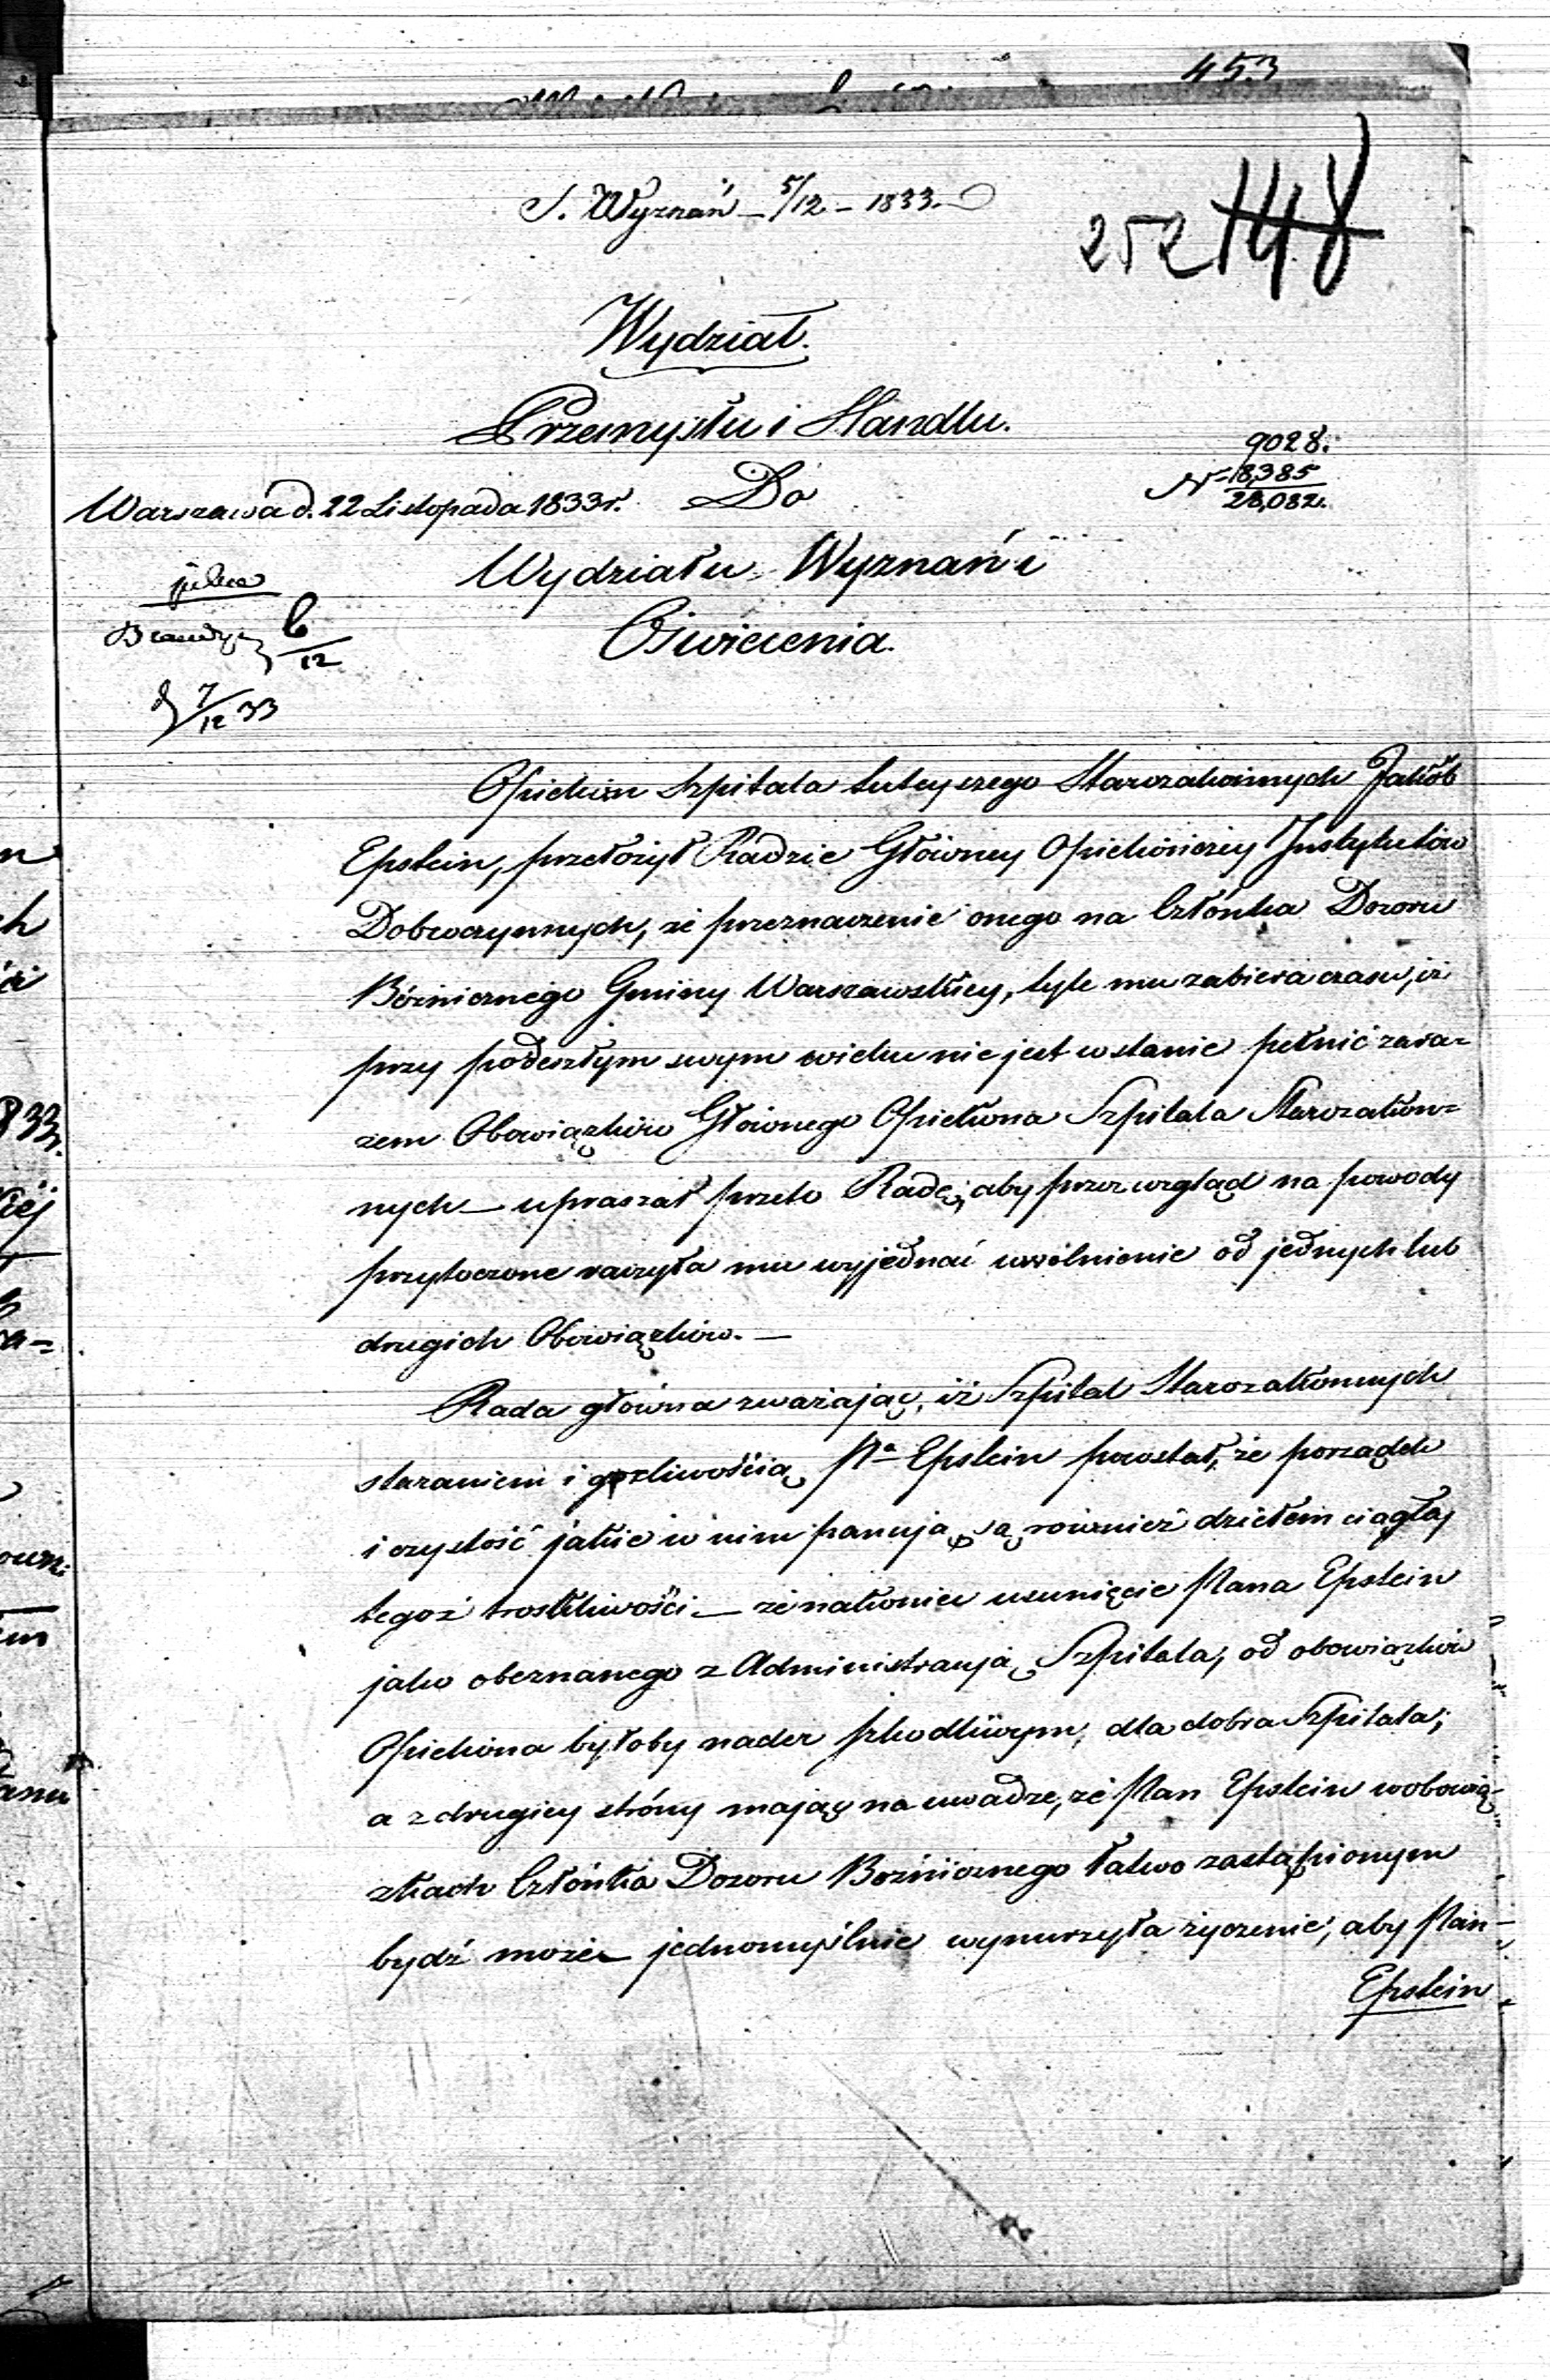 453
S. Wyznań – 5/12 – 1833.
252 148
Wydział.
Przemysłu i Handlu.
9028.
Warszawa d. 22 Listopada 1833 r. Do
N 18,385
28,082.
Wydziału Wyznań i
pilne
Oświecenia.
6/12
7/12 33
Opiekun Szpitala tuteyszego Starozakonnych Jakób
Epstein, przełożył Radzie Głowney Opiekuńczey Instytutów
Dobroczynnych, że przeznaczenie onego na Członka Dozoru
Bóżnicznego Gminy Warszawskiey, tyle mu zabiera czasu, iż
przy podeszłym swym wieku nie jest w stanie pełnić zara=
zem Obowiązków Głównego Opiekuna Szpitala Starozakon=
nych – upraszał przeto Radę, aby przez wzgląd na powody
przytoczone raczyła mu wyjednać uwolnienie od jednych lub
drugich Obowiązków. –
Rada główna zważając, iż Szpital Starozakonnych
staraniem i gorliwością Pa Epstein powstał, że porządek
i czystość jakie w nim panują, są również dziełem ciągłej
tegoż troskliwości – że nakoniec usunięcie Pana Epstein
jako obeznanego z Administracją Szpitala, od obowiązków
Opiekuna byłoby nader szkodliwym, dla dobra Szpitala;
a z drugiey stróny mając na uwadze, że Pan Epstein w obowią-
zkach Członka Dozoru Bożnicznego łatwo zastąpionym
bydź może – jednomyślnie wynurzyła życzenie, aby Pan
Epstein